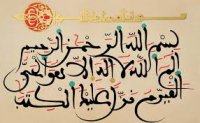 بسم الله الرحمن الرحيم
الم الله لا اله الا هو الحى
القيوم نزل عليك الكتب